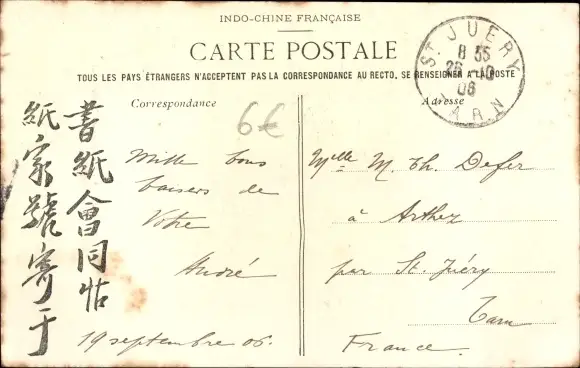 INDO-CHINE FRANÇAISE
CARTE POSTALE
TOUS LES PAYS ÉTRANGERS N'ACCEPTENT PAS LA CORRESPONDANCE AU RECTO, SE RENSEIGNER A LA POSTE
ST JUERY
8 35
26 -10
06
TARN
Correspondance
6€
Mille bons
baisers de
Votre
André
19 septembre 06.
書紙會同
紙家號寄于
Adresse
Mlle M. Th. Defer
à Arthez
par St. Juéry
Tarn
France.